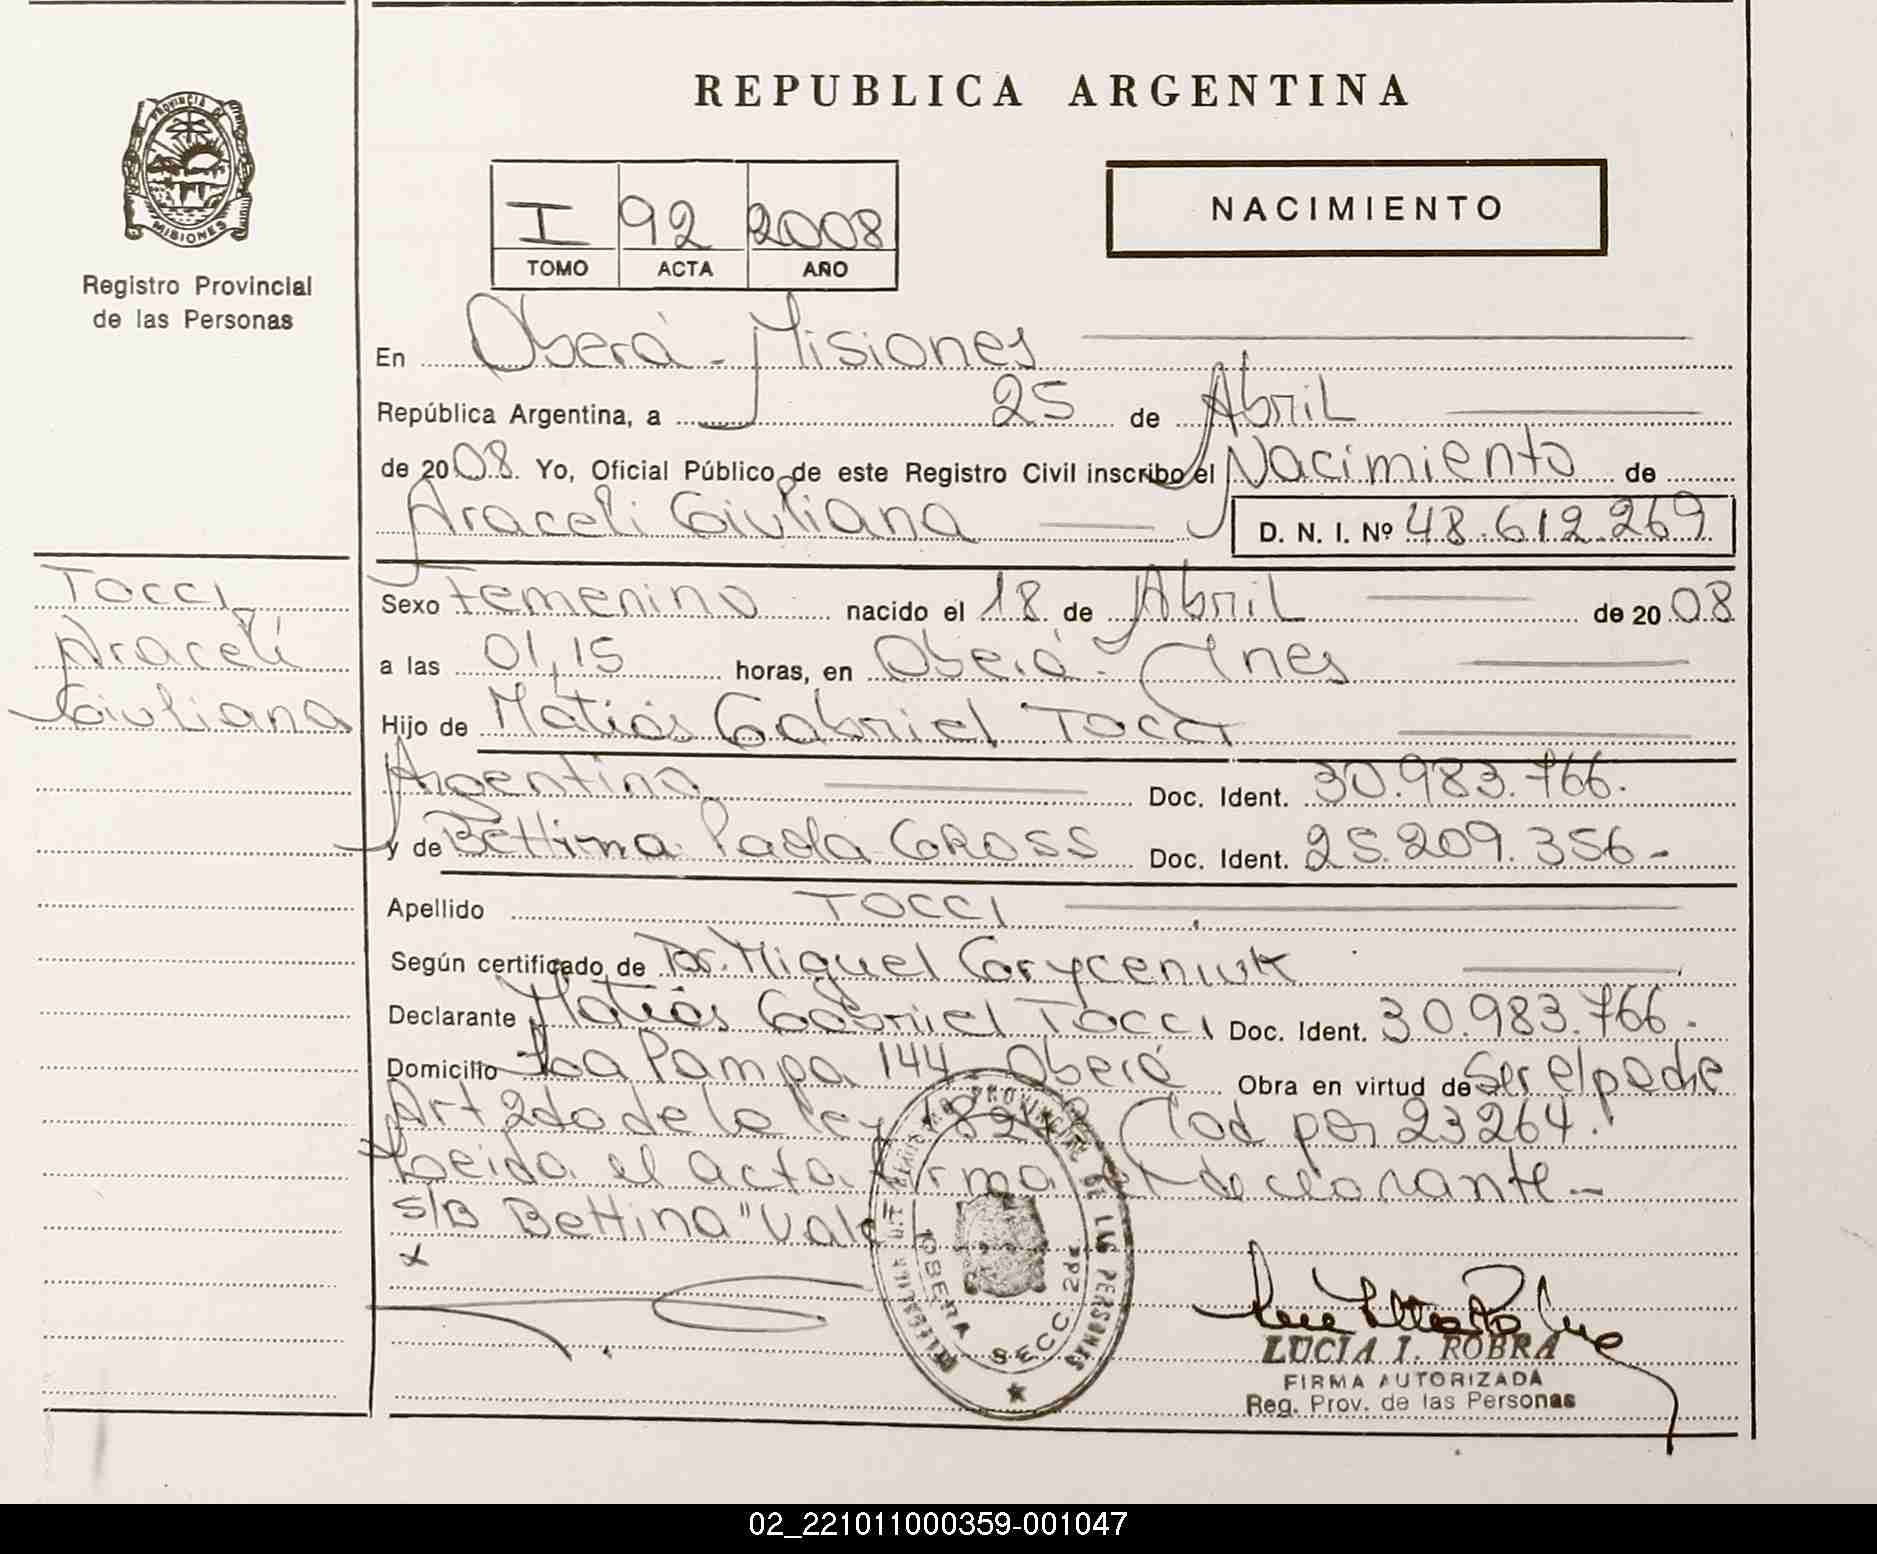 REPUBLICA ARGENTINA
PROVINCIA DE
MISIONES
Registro Provincial
de las Personas
I 92 2008
TOMO ACTA AÑO
NACIMIENTO
En Oberá - Misiones
República Argentina, a 25 de Abril
de 2008. Yo, Oficial Público de este Registro Civil inscribo el Nacimiento de
Araceli Giuliana D. N. I. Nº 48.612.269
TOCCI
Araceli
Giuliana
Sexo Femenino nacido el 18 de Abril de 2008
a las 01,15 horas, en Oberá - Mnes
Hijo de Matías Gabriel TOCCI
Argentina Doc. Ident. 30.983.766.
y de Bettina Paola GROSS Doc. Ident. 25.209.356-
Apellido TOCCI
Según certificado de Dr. Miguel Coryceniuk
Declarante Matías Gabriel TOCCI Doc. Ident. 30.983.766.
Domicilio La Pampa 144 - Oberá Obra en virtud de Ser el padre
Art 2do de la ley Mod por 23264.
Leida el acta firma el declarante-
S/B Bettina "Vale"
x
REGISTRO PROVINCIAL DE LAS PERSONAS
OBERA SECC. 2da
LUCIA I. ROBRA
FIRMA AUTORIZADA
Reg. Prov. de las Personas
02_221011000359-001047